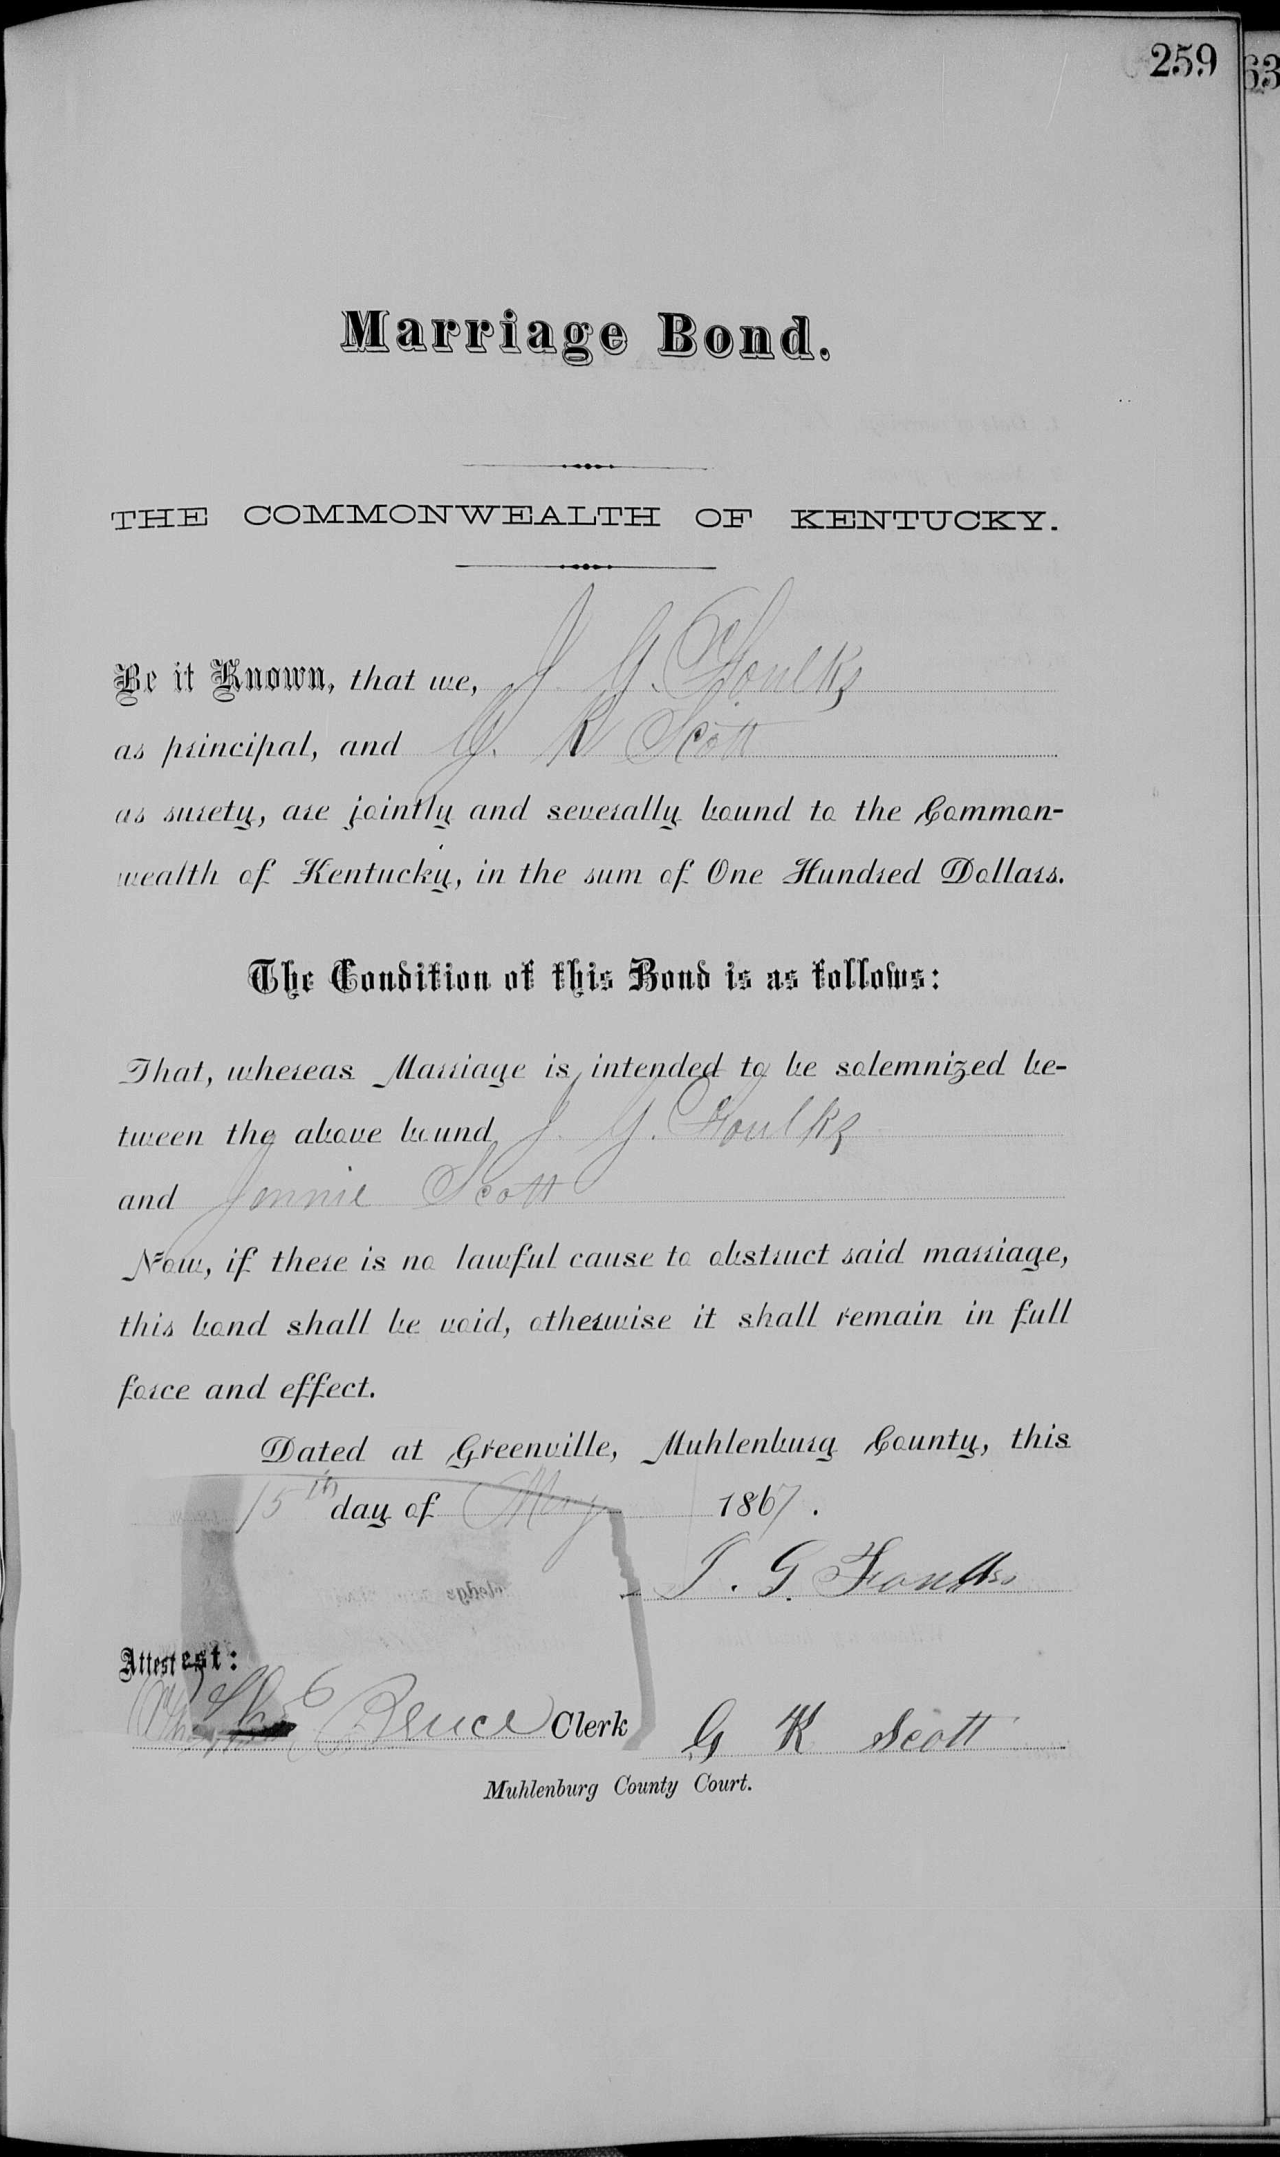 259
63
Marriage Bond.
THE COMMONWEALTH OF KENTUCKY.
Be it Known, that we, J. G. Foulks
as principal, and G. K Scott
as surety, are jointly and severally bound to the Common-
wealth of Kentucky, in the sum of One Hundred Dollars.
The Condition of this Bond is as follows:
That, whereas Marriage is intended to be solemnized be-
tween the above bound J. G. Foulks
and Jennie Scott
Now, if there is no lawful cause to obstruct said marriage,
this bond shall be void, otherwise it shall remain in full
force and effect.
Dated at Greenville, Muhlenburg County, this
15th day of May 1867.
J. G. Foulks
Attest:
Bruce Clerk
G K Scott
Muhlenburg County Court.